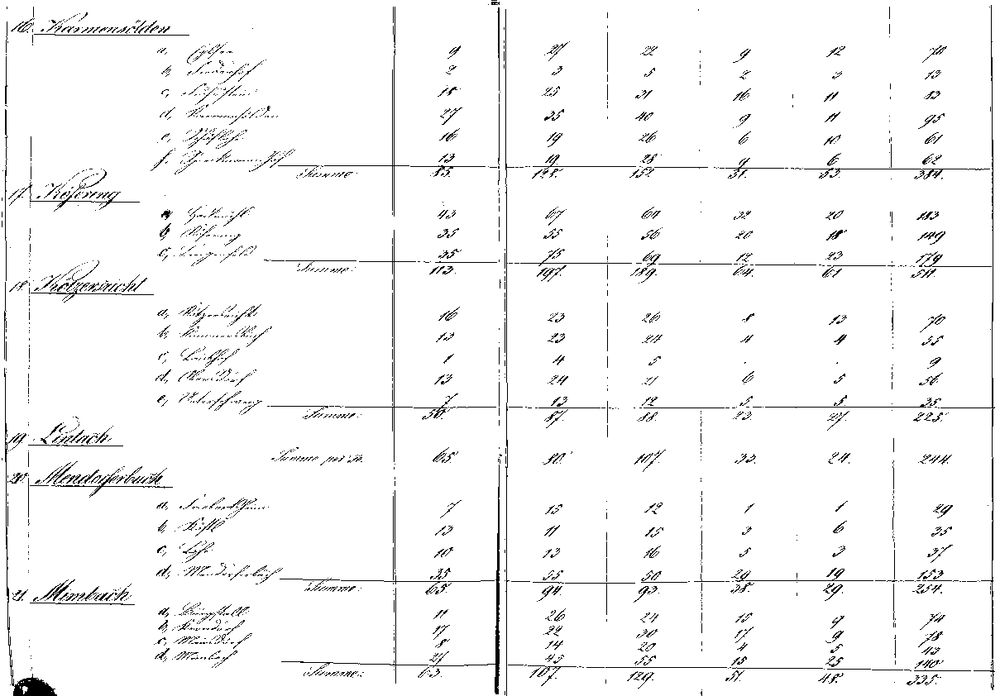 16. Karmensölden
a, Eglsee 9 27 22 9 12 70
b, 2 3 5 2 3 13
c, 18 25 31 16 11 83
d, Karmensölden 27 35 40 9 11 95
e, Schäflohe 16 19 26 6 10 61
f, Speckmannshof 13 19 28 9 6 62
Summe: 85. 128. 152. 51. 53. 384.
17. Köfering
a, 43 67 64 32 20 183
b, Köfering 35 55 56 20 18 149
c, Lengenfeld 35 75 69 12 23 179
Summe: 113. 197. 189. 64. 61. 511.
18. Kötzersricht
a, Kötzersricht 16 23 26 8 13 70
b, Kümmersbuch 13 23 24 4 4 55
c, Laubhof 1 4 5 . . 9
d, 13 24 21 6 5 56
e, Unterschwaig 7 13 12 5 5 35
Summe: 50. 87. 88. 23. 27. 225.
19. Lintach
Summe per se. 65. 80. 107. 33. 24. 244.
20. Mendorferbuch
a, 7 15 12 1 1 29
b, Köstl 13 11 15 3 6 35
c, Lohe 10 13 16 5 3 37
d, Mendorferbuch 35 55 50 29 19 153
Summe: 65. 94. 93. 38. 29. 254.
21. Mimbach
a, Burgstall 11 26 24 15 9 74
b, 17 22 30 17 9 78
c, Mausdorf 8 14 20 4 5 43
d, Mimbach 27 45 55 15 25 140
Summe: 63. 107. 129. 51. 48. 335.